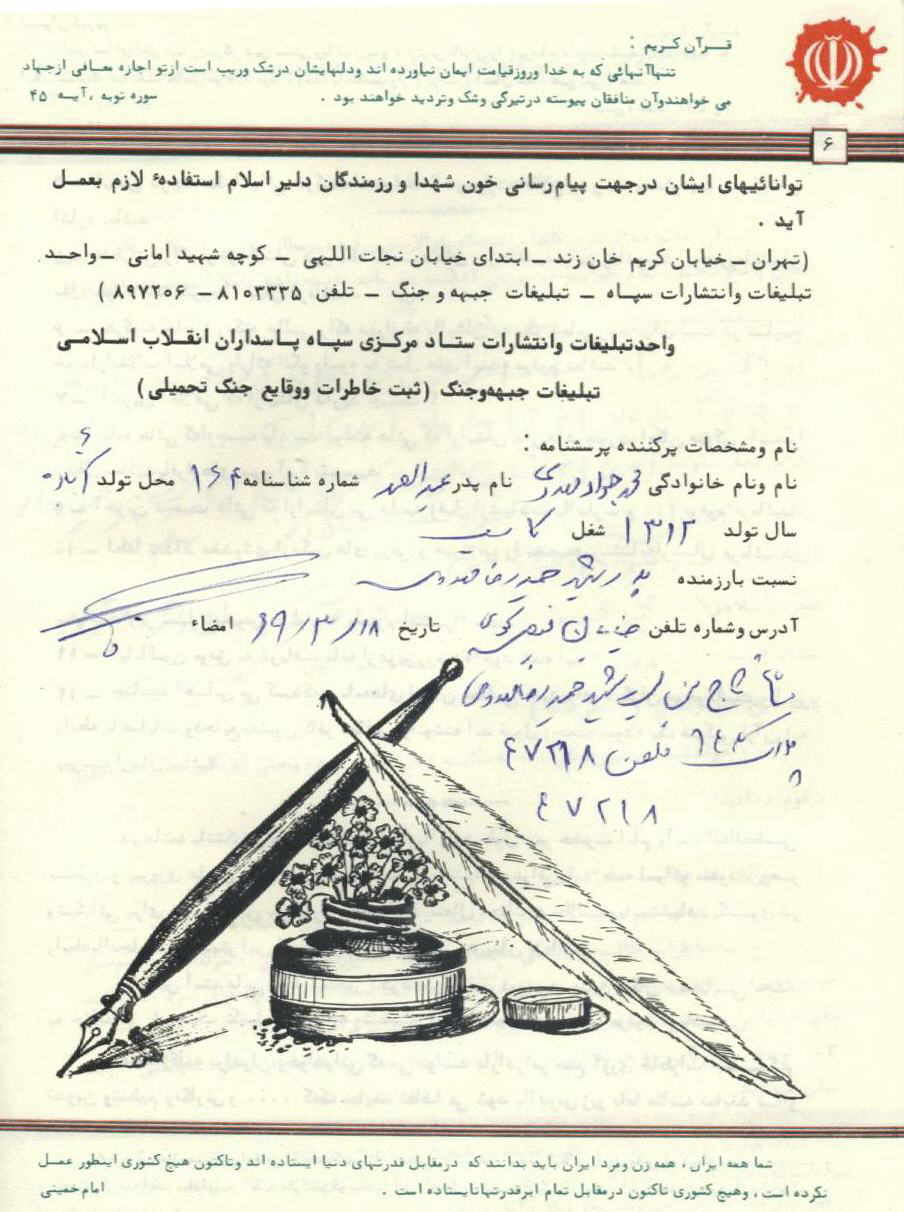 قـرآن کریم :
تنهاآنهائی که به خدا وروزقیامت ایمان نیاورده اند ودلهایشان درشک وریب است ازتو اجازه معافی ازجهاد
می خواهندوآن منافقان پیوسته درتیرگی وشک وتردید خواهند بود . سوره توبه ، آیــه ۴۵
۶
توانائیهای ایشان درجهت پیام‌رسانی خون شهدا و رزمندگان دلیر اسلام استفادهٔ لازم بعمل
آید .
(تهران ــ خیابان کریم خان زند ــ ابتدای خیابان نجات اللهی ــ کوچه شهید امانی ــ واحــد
تبلیغات وانتشارات سپـاه ــ تبلیغات جبهه و جنگ ــ تلفن ۸۱۰۳۳۳۵ ــ ۸۹۷۲۰۶ )
واحدتبلیغات وانتشارات ستـاد مرکزی سپـاه پـاسداران انقـلاب اسـلامـی
تبلیغات جبهه‌وجنگ (ثبت خاطرات ووقایع جنگ تحمیلی)
نام ومشخصات پرکننده پرسشنامه :
نام ونام خانوادگی محمد جواد مهدوی نام پدر شماره شناسنامه ۱۶۴ محل تولد
سال تولد ۱۳۱۳ شغل
نسبت بارزمنده پدر شهید حمیدرضا مهدوی
آدرس وشماره تلفن تاریخ ۶۹/۳/۱۸ امضاء
شهید حمیدرضا مهدوی
پلاک تلفن ۴۷۲۱۸
۴۷۲۱۸
شما همه ایران ، همه زن ومرد ایران باید بدانند که درمقابل قدرتهای دنیا ایستاده اند وتاکنون هیچ کشوری اینطور عمــل
نکرده است ، وهیچ کشوری تاکنون درمقابل تمام ابرقدرتهانایستاده است . امام خمینی